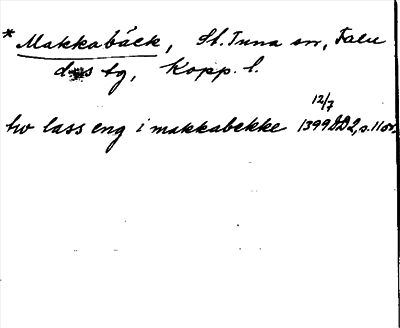 * Makkabäck, St. Tuna sn, Falu
ds tg, Kopp. l.
12/7
tw lass eng i makkabekke 1399 DD2, s. 110